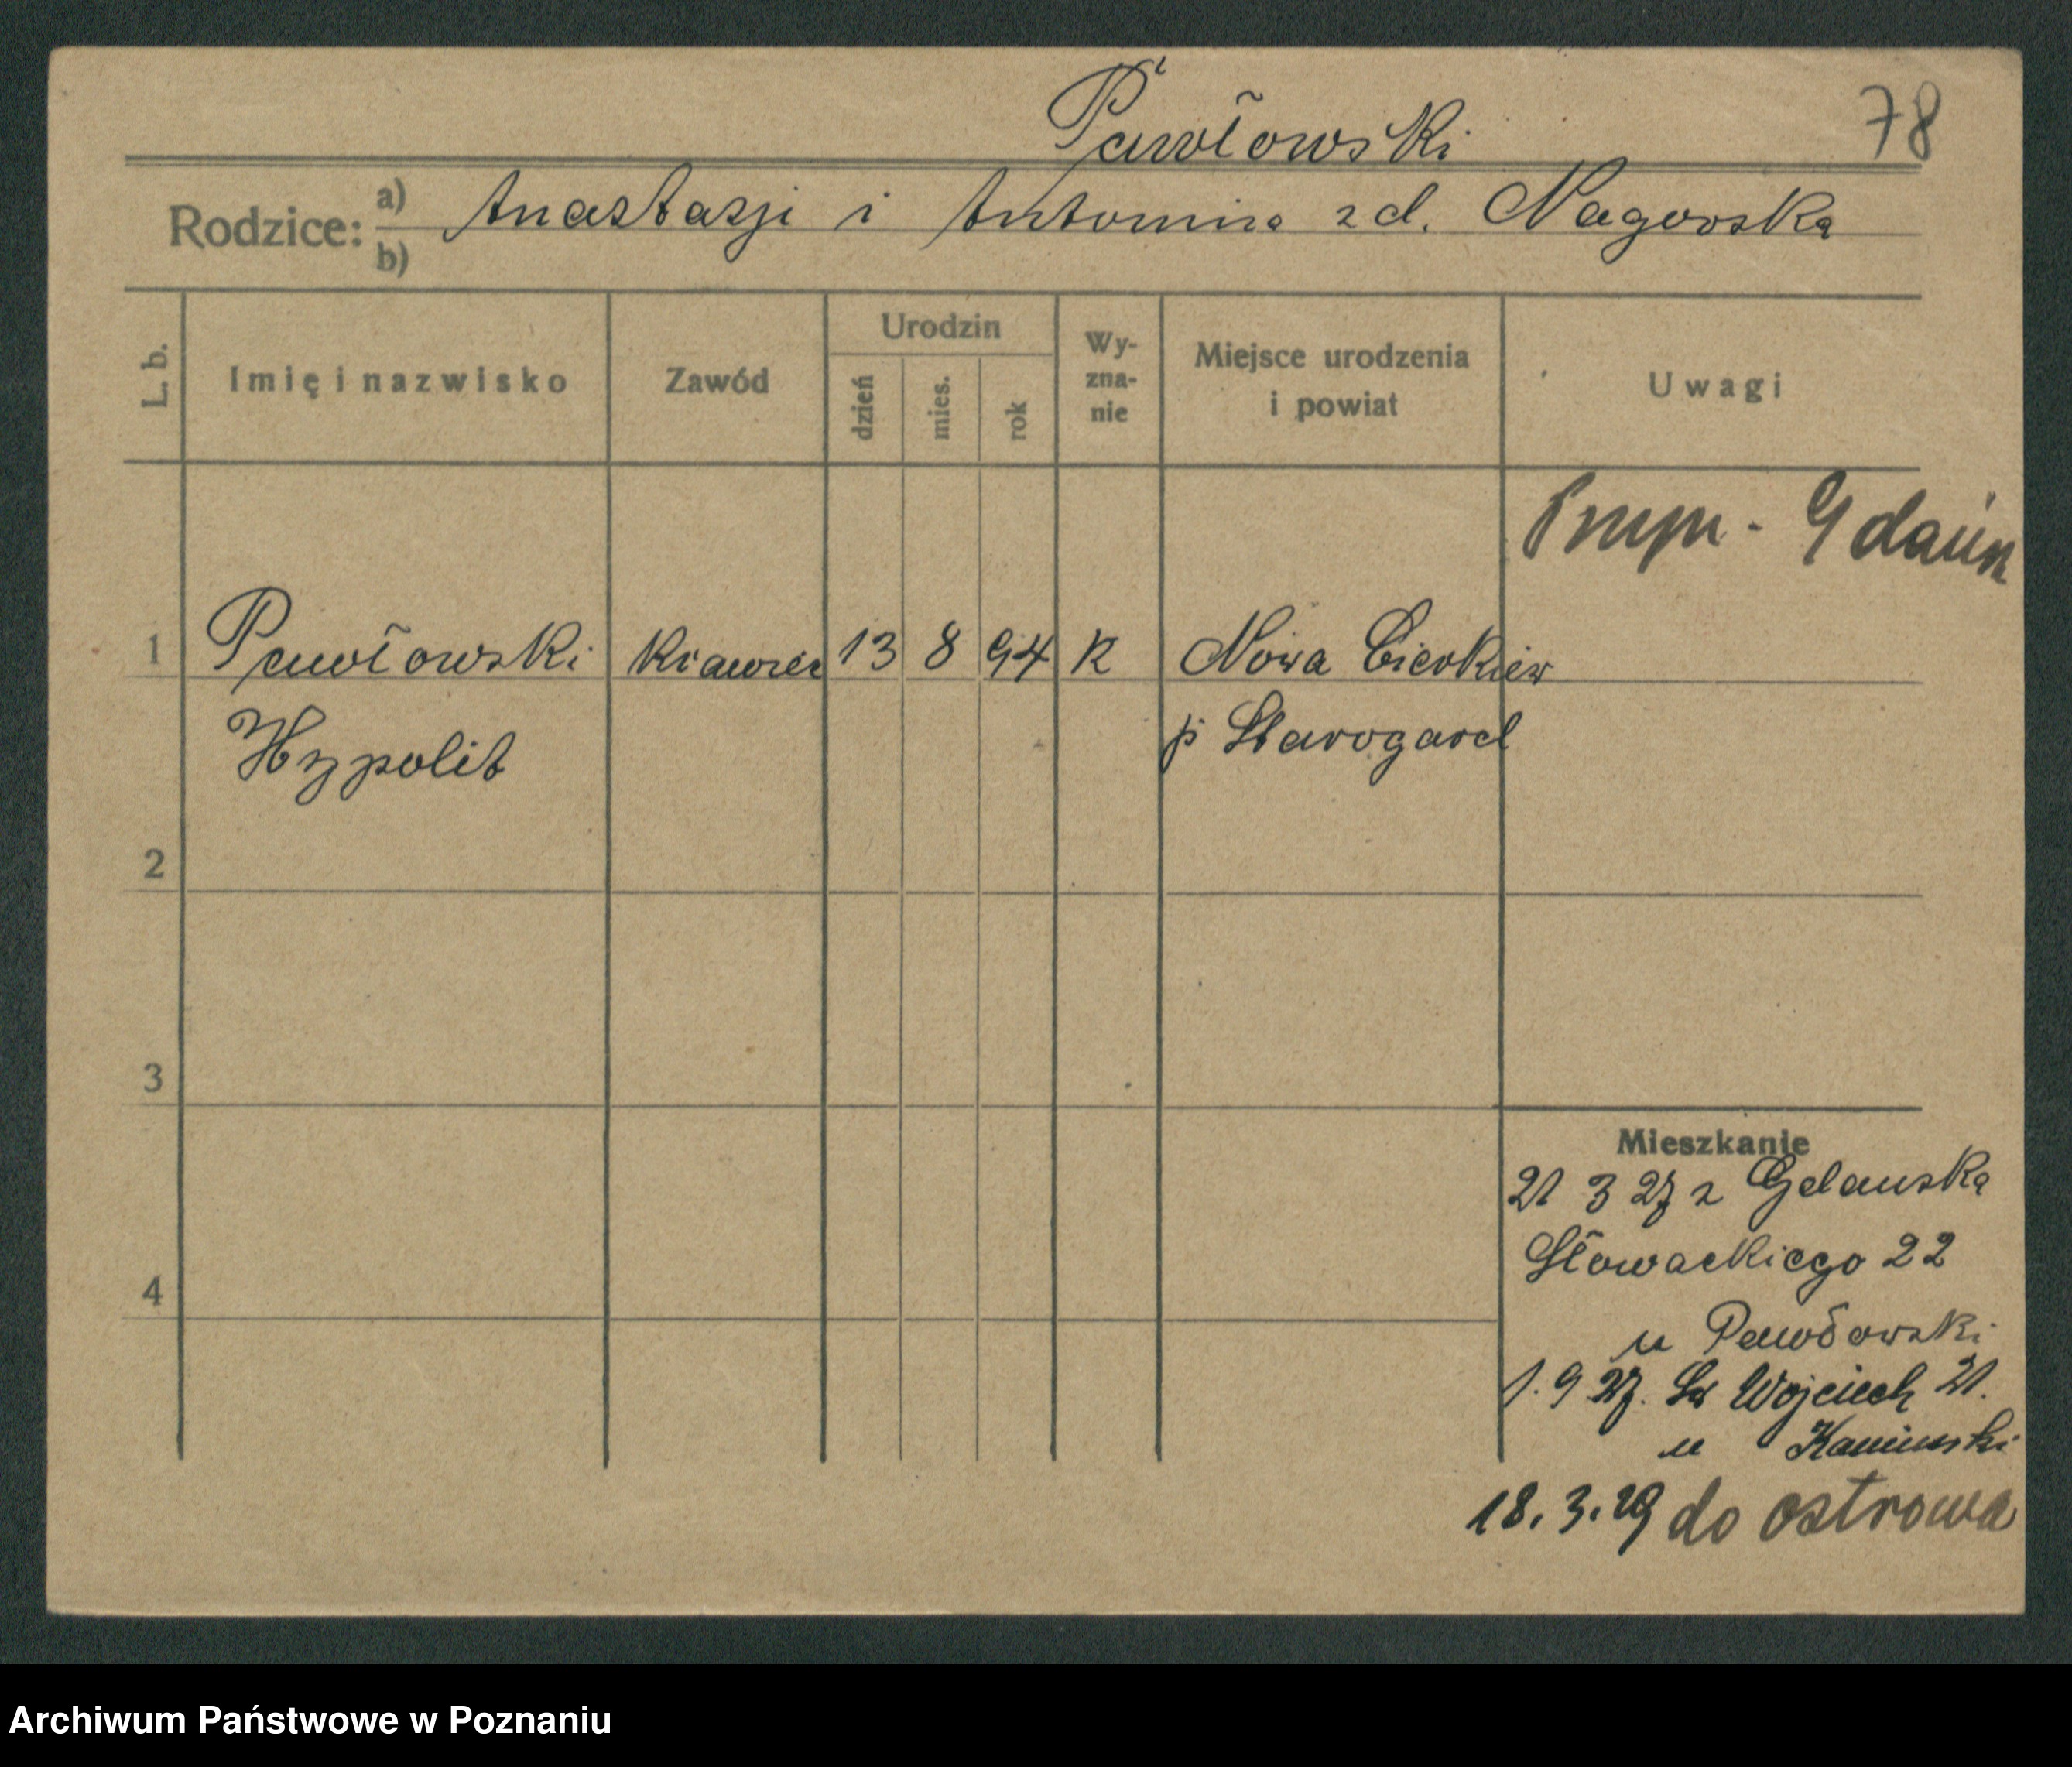 Pawłowski
78
Rodzice: a) Anastazji i Antonina z d. Nagorska
b)
L. b.
Imię i nazwisko
Zawód
Urodzin
dzień
mies.
rok
Wy-
zna-
nie
Miejsce urodzenia
i powiat
Uwagi
Gdańsk
1 Pawłowski krawiec 13 8 94 K Nowa Cierkiew
Hypolit p Starogard
2
3
4
Mieszkanie
21 3 27 z Gdańska
Słowackiego 22
u Pawłowski
1. 9 27. Św Wojciech 21.
u Kaminski
18. 3. 29 do Ostrowa
Archiwum Państwowe w Poznaniu